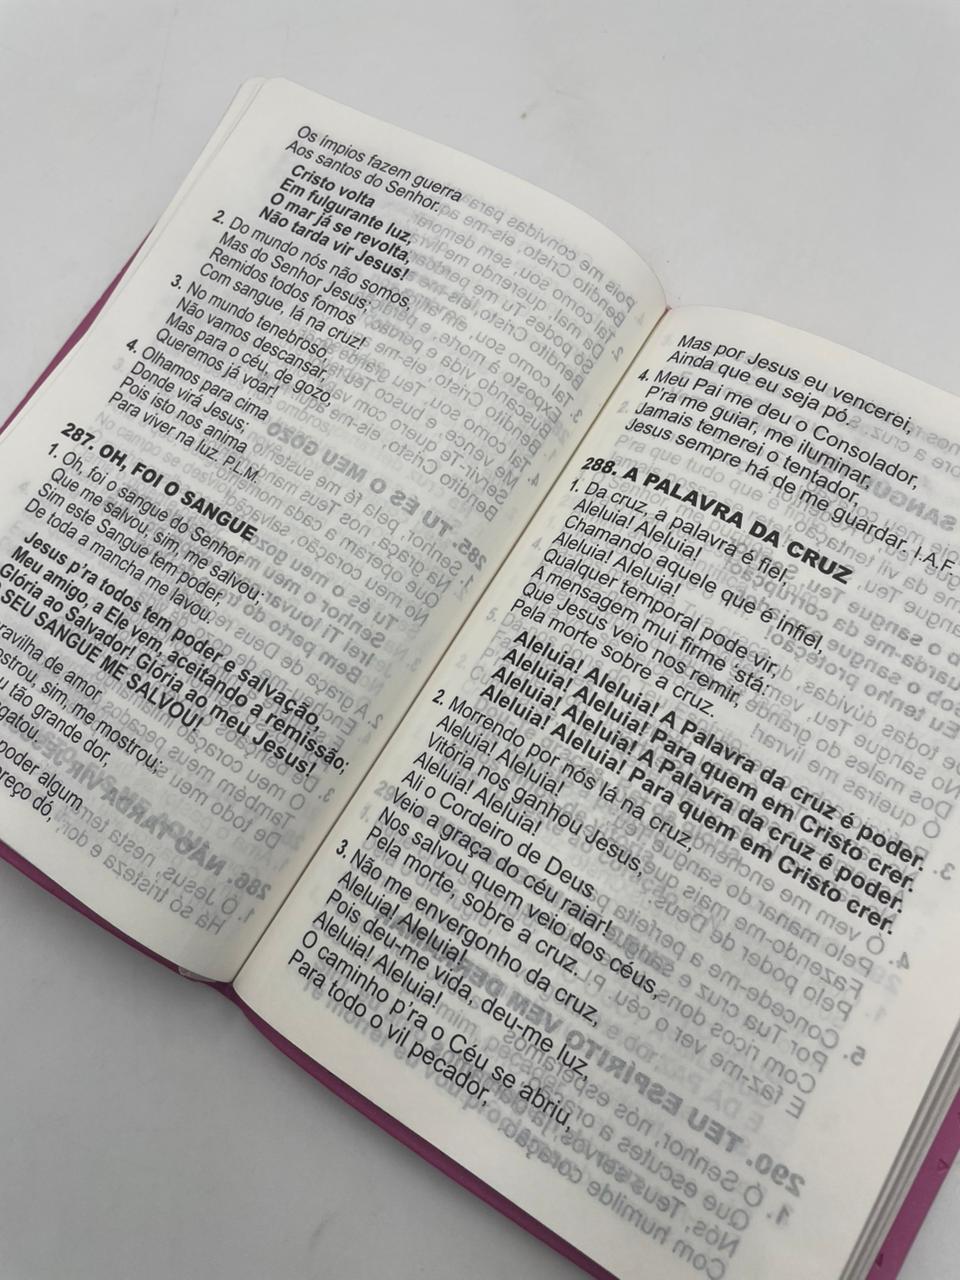 Os ímpios fazem guerra
Aos santos do Senhor.
Cristo volta
Em fulgurante luz,
O mar já se revolta,
Não tarda vir Jesus!
2. Do mundo nós não somos,
Mas do Senhor Jesus;
Remidos todos fomos
Com sangue, lá na cruz!
3. No mundo tenebroso,
Não vamos descansar,
Mas para o céu, de gozo,
Queremos já voar!
4. Olhamos para cima
Donde virá Jesus;
Pois isto nos anima
Para viver na luz. P.L.M.
287. OH, FOI O SANGUE
1. Oh, foi o sangue do Senhor
Que me salvou, sim, me salvou;
Sim este Sangue tem poder,
De toda a mancha me lavou.
Jesus p'ra todos tem poder e salvação,
Meu amigo, a Ele vem, aceitando a remissão;
Glória ao Salvador! Glória ao meu Jesus!
SEU SANGUE ME SALVOU!
de amor
sim, me mostrou;
tão grande dor,
poder algum
dó,
Mas por Jesus eu vencerei,
Ainda que eu seja pó.
4. Meu Pai me deu o Consolador,
P'ra me guiar, me iluminar,
Jamais temerei o tentador,
Jesus sempre há de me guardar. I.A.F.
288. A PALAVRA DA CRUZ
1. Da cruz, a palavra é fiel,
Aleluia! Aleluia!
Chamando aquele que é infiel,
Aleluia! Aleluia!
Qualquer temporal pode vir,
A mensagem mui firme 'stá:
Que Jesus veio nos remir,
Pela morte sobre a cruz.
Aleluia! Aleluia! A Palavra da cruz é poder.
Aleluia! Aleluia! Para quem em Cristo crer.
Aleluia! Aleluia! A Palavra da cruz é poder.
Aleluia! Aleluia! Para quem em Cristo crer.
2. Morrendo por nós lá na cruz,
Aleluia! Aleluia!
Vitória nos ganhou Jesus,
Aleluia! Aleluia!
Ali o Cordeiro de Deus,
Veio a graça do céu raiar!
Nos salvou quem veio dos céus,
Pela morte, sobre a cruz.
3. Não me envergonho da cruz,
Aleluia! Aleluia!
Pois deu-me vida, deu-me luz,
Aleluia! Aleluia!
O caminho p'ra o Céu se abriu,
Para todo o vil pecador,